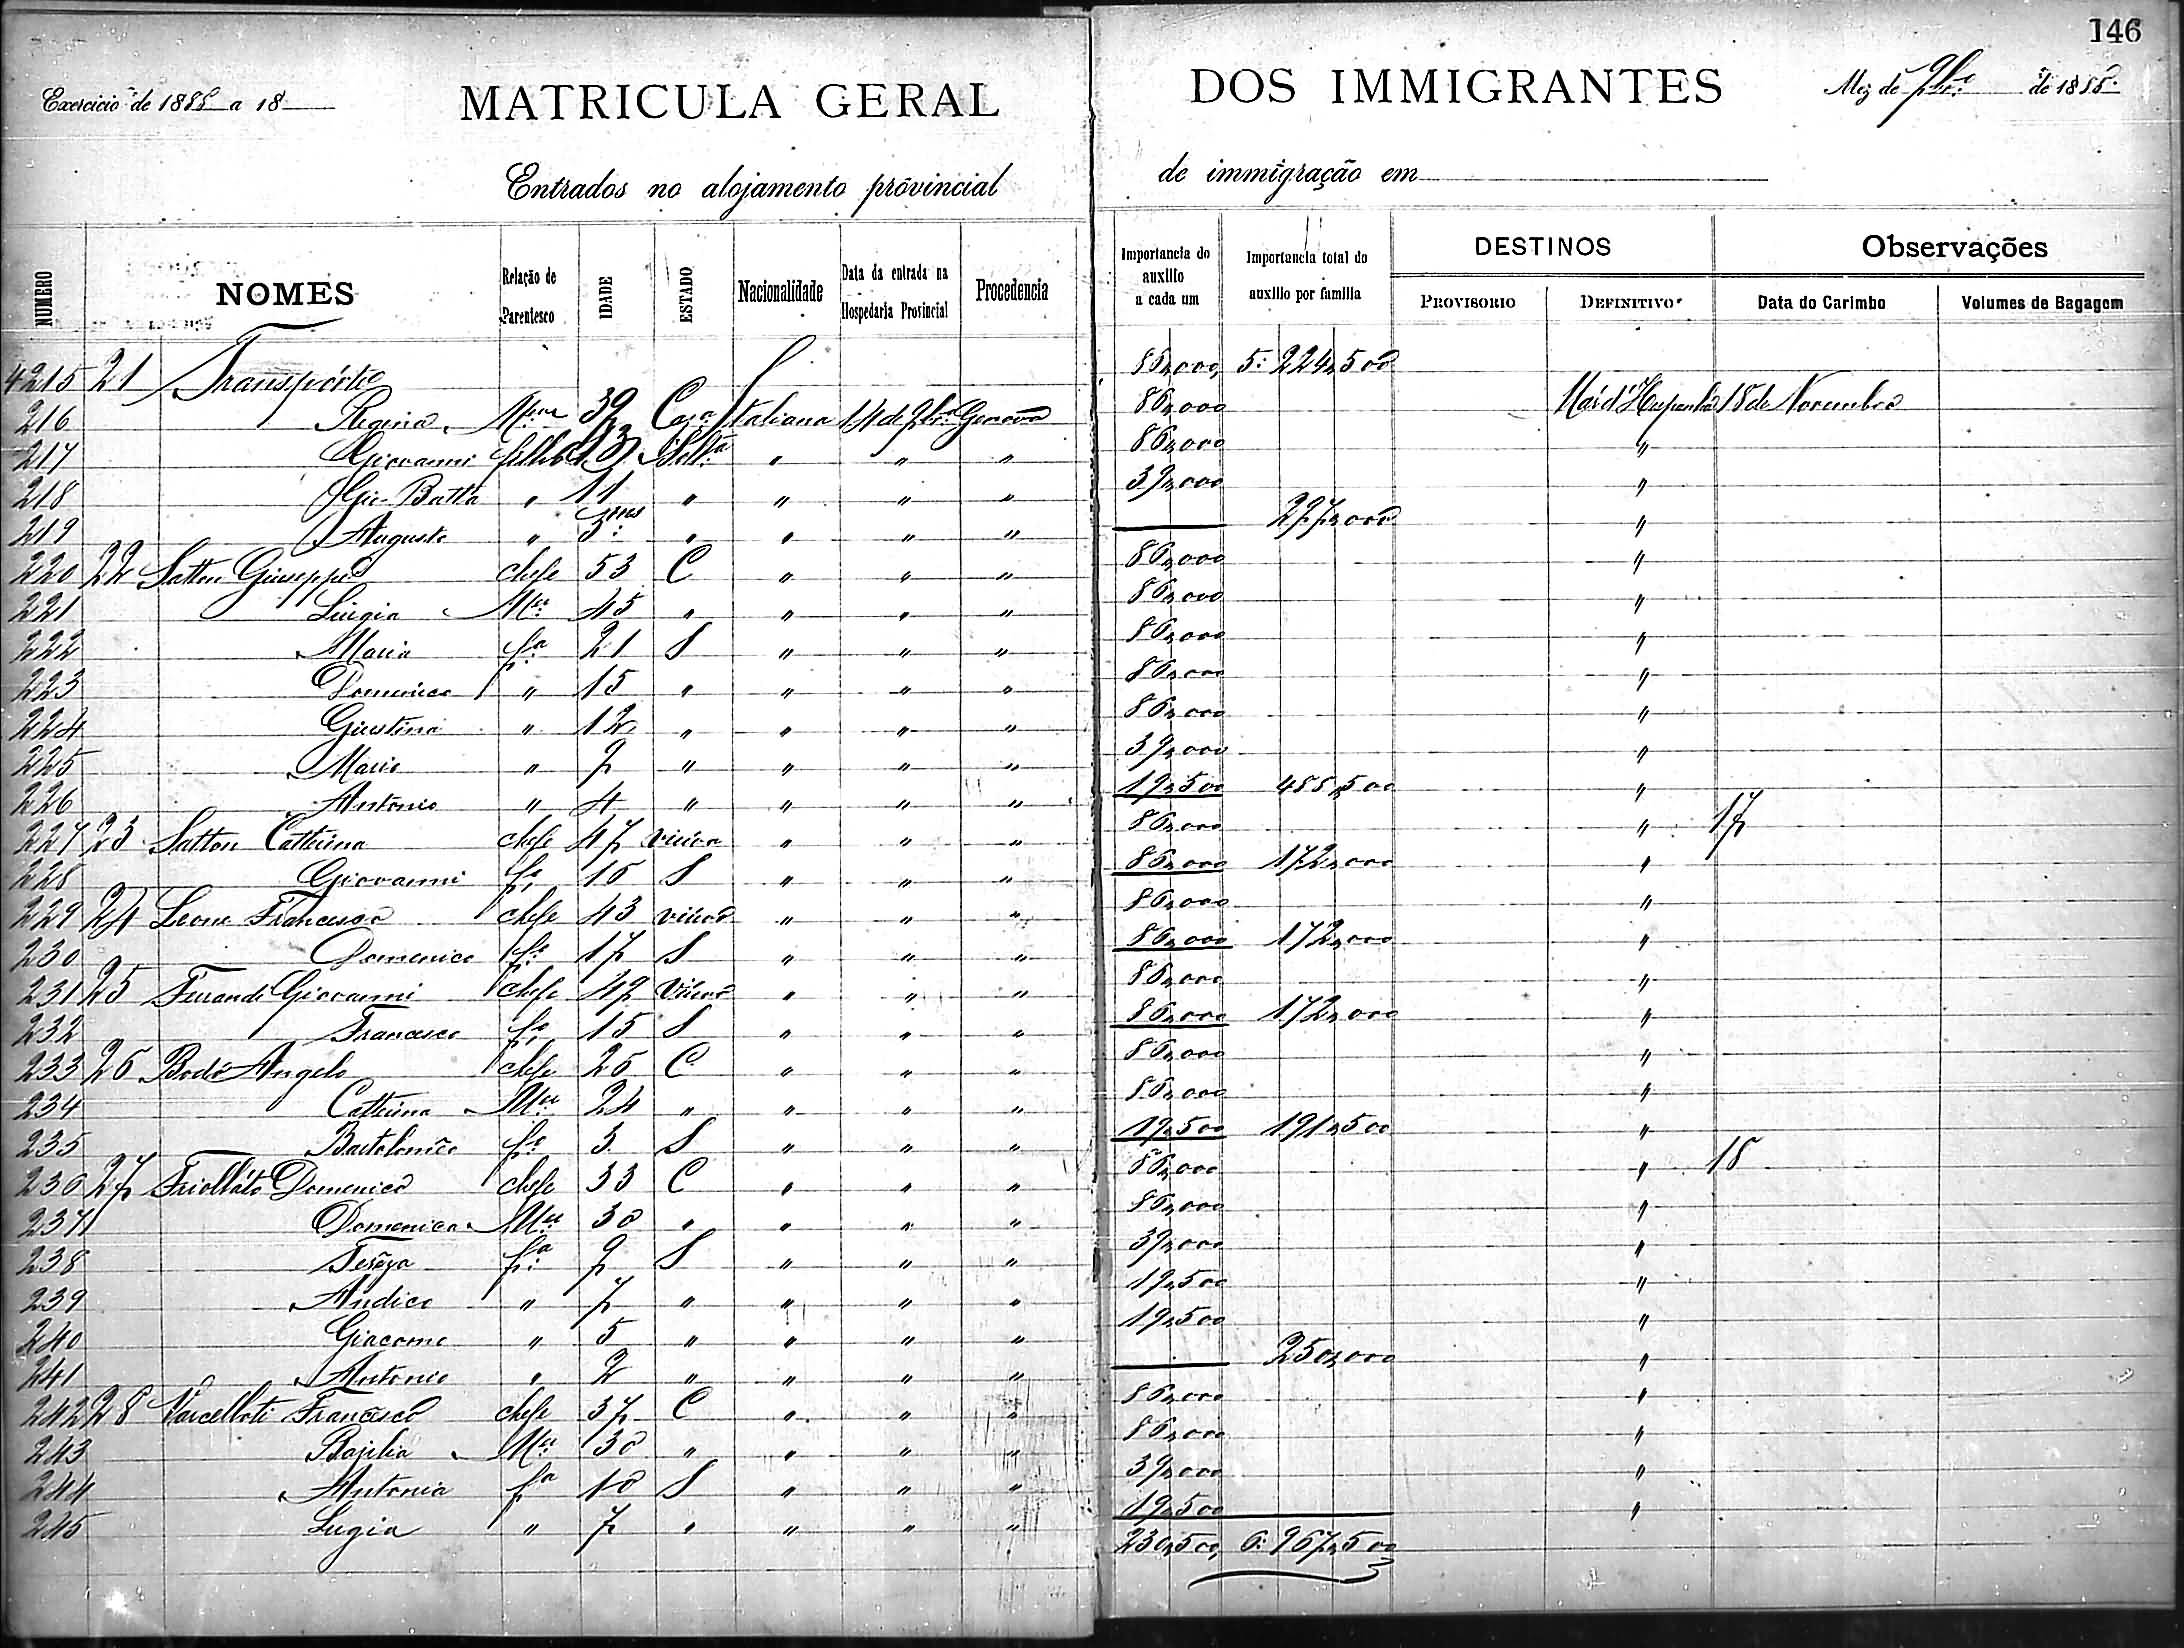 146
Exercicio de 1885 a 18
MATRICULA GERAL DOS IMMIGRANTES
Mez de 9br.o de 1885
Entrados no alojamento provincial de immigração em
NUMERO NOMES Relação de Parentesco IDADE ESTADO Nacionalidade Data da entrada na Hospedaria Provincial Procedencia Importancia do auxilio a cada um Importancia total do auxilio por familia DESTINOS PROVISORIO DEFINITIVO Observações Data do Carimbo Volumes de Bagagem
4215 21 Transpórte 86,000 5:224,500
216 Regina Mer 39 Caza Italiana 14 de 9bro Genova 86,000 18 de Novembro
217 Giovanni filho 13 Solto " " " 86,000 "
218 Gio-Batta " 11 " " " " 39,000 "
219 Augusto " 3mes " " " " 297,000 "
220 22 Satton Giuseppe chefe 53 C " " " 86,000 "
221 Luigia Mer 45 " " " " 86,000 "
222 Maria fa 21 S " " " 86,000 "
223 Domenico " 15 " " " " 86,000 "
224 Giustina " 12 " " " " 86,000 "
225 Mario " 9 " " " " 39,000 "
226 Antonio " 4 " " " " 19,500 488,500 "
227 23 Satton Catterina chefe 47 viuva " " " 86,000 " 17
228 Giovanni fo 16 S " " " 86,000 172,000 "
229 24 Leone Francesco chefe 43 viuvo " " " 86,000 "
230 Domenico fo 17 S " " " 86,000 172,000 "
231 25 Giovanni chefe 49 viuvo " " " 86,000 "
232 Francesco fo 15 S " " " 86,000 172,000 "
233 26 Bodo Angelo chefe 26 C " " " 86,000 "
234 Catterina Mer 24 " " " " 86,000 "
235 Bartolomeo fo 3 S " " " 19,500 191,500 "
236 27 Domenico chefe 33 C " " " 86,000 " 18
237 Domenica Mer 30 " " " " 86,000 "
238 Teréza fa 9 S " " " 39,000 "
239 " 7 " " " " 19,500 "
240 Giacomo " 5 " " " " 19,500 "
241 Antonio " 2 " " " " 250,000 "
242 28 Varcelloti Francesco chefe 37 C " " " 86,000 "
243 Mer 30 " " " " 86,000 "
244 Antonia fa 10 S " " " 39,000 "
245 Lugia " 7 " " " " 19,500 "
230,500 6:967,500